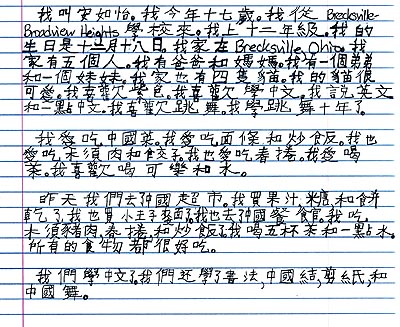 我叫安如怡。我今年十七歲。我從 Brecksville-
Broadview Heights 學校來。我上十二年級。我的
生日是十二月十八日。我家在 Brecksville, Ohio。我
家有五個人。我有爸爸和媽媽。我有一個弟弟
和一個妹妹。我家也有四隻貓。我的貓很
可愛。我喜歡紫色。我喜歡學中文。我說英文
和一點中文。我喜歡跳舞。我學跳舞十年了。
我愛吃中國菜。我愛吃面條和炒飯。我也
愛吃木須肉和餃子。我也愛吃春捲。我愛喝
茶。我喜歡喝可樂和水。
昨天我們去中國超市。我買果汁、糖、和餅
乾了。我也買小王子麵了。我也去中國餐館。我吃
木須豬肉、春捲、和炒飯了。我喝五杯茶和一點水。
所有的食物都很好吃。
我們學中文了。我們还學了書法,中國結,剪紙,和
中國舞。